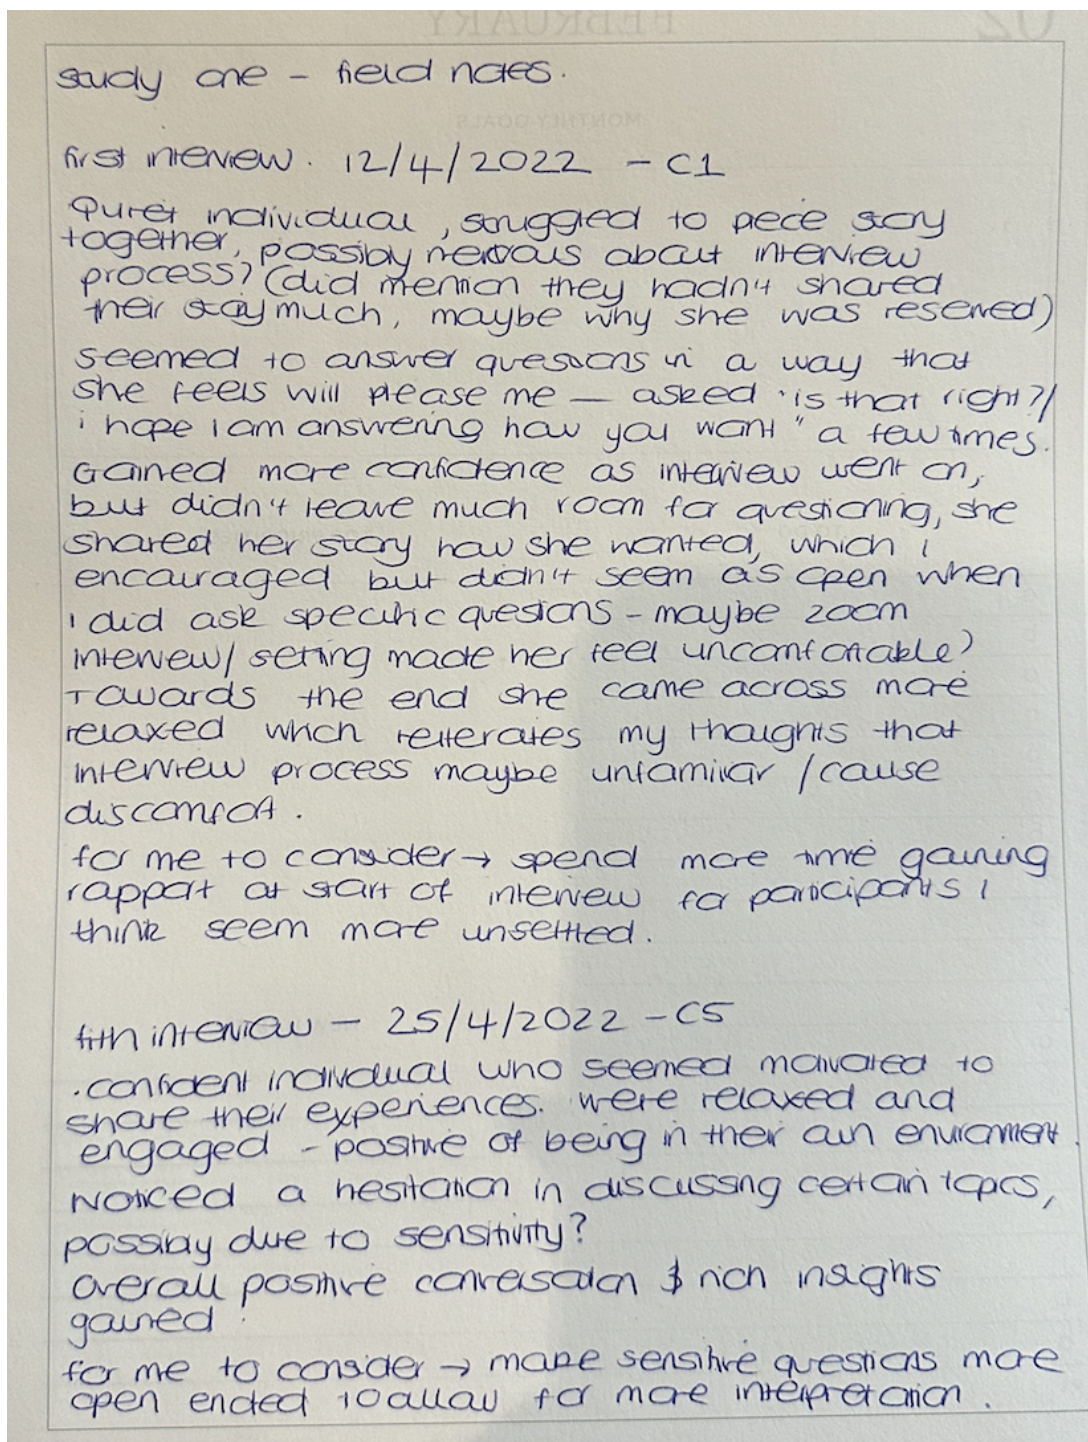 study one - field notes.
first interview. 12/4/2022 - C1
Quiet individual, struggled to piece story
together, possibly nervous about interview
process? (did mention they hadn't shared
their story much, maybe why she was reserved)
seemed to answer questions in a way that
she feels will please me — asked 'is that right?/
i hope I am answering how you want" a few times.
Gained more confidence as interview went on,
but didn't leave much room for questioning, she
shared her story how she wanted, which i
encouraged but didn't seem as open when
I did ask specific questions - maybe zoom
interview/ setting made her feel uncomfortable?
Towards the end she came across more
relaxed which reiterates my thoughts that
interview process maybe unfamiliar / cause
discomfort.
for me to consider → spend more time gaining
rapport at start of interview for participants I
think seem more unsettled.
fifth interview - 25/4/2022 - C5
. confident individual who seemed motivated to
share their experiences. were relaxed and
engaged - positive of being in their own environment.
Noticed a hesitation in discussing certain topics,
possibly due to sensitivity?
Overall positive conversation & rich insights
gained.
for me to consider → make sensitive questions more
open ended to allow for more interpretation.